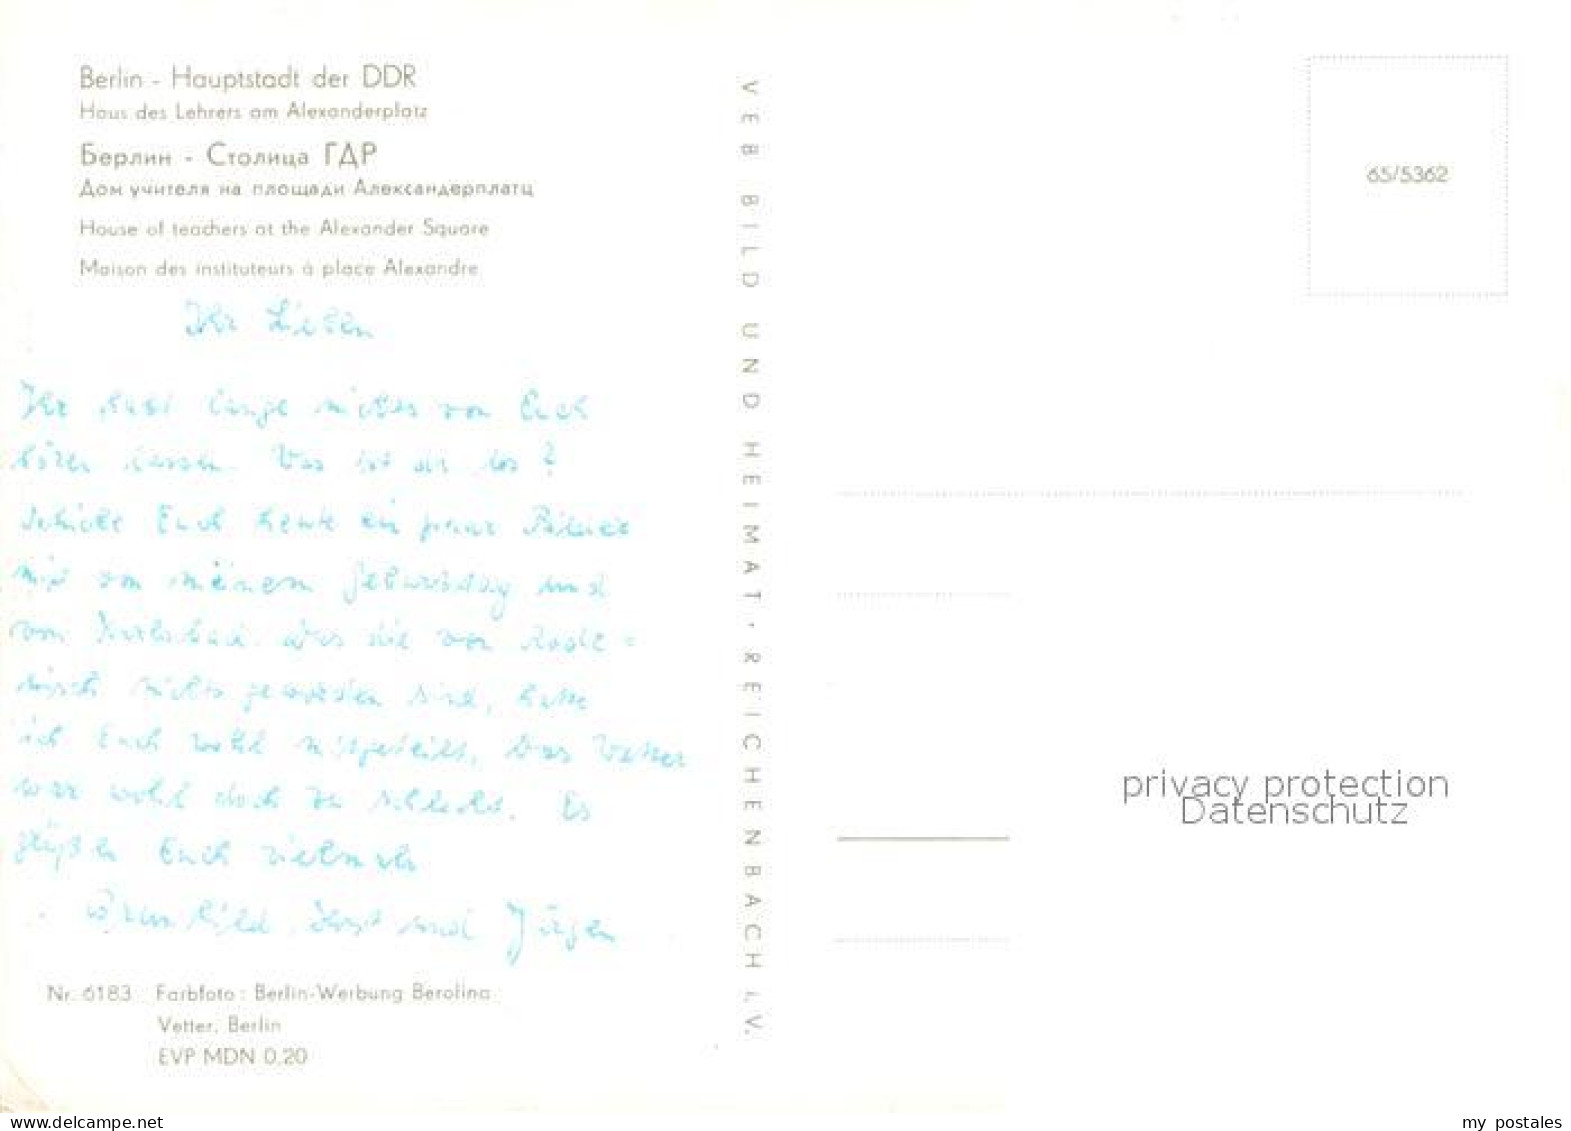 Berlin - Hauptstadt der DDR
Haus des Lehrers am Alexanderplatz
Берлин - Столица ГДР
Дом учителя на площади Александерплатц
House of teachers at the Alexander Square
Maison des instituteurs à place Alexandre
Ihr Lieben
Ihr habt lange nichts von Euch
hören lassen. Was ist da los?
Schicke Euch heute ein paar Bilder
mit von meinem Geburtstag und
von das wir von
nichts geworden sind, hatte
ich Euch wohl mitgeteilt, das Wetter
war wohl doch zu schlecht. Es
grüßen Euch vielmals
Brunhild, Horst und Jürgen
Nr. 6183 Farbfoto: Berlin-Werbung Berolina
Vetter, Berlin
EVP MDN 0,20
VEB BILD UND HEIMAT · REICHENBACH i. V.
65/5362
privacy protection
Datenschutz
www.delcampe.net
my_postales